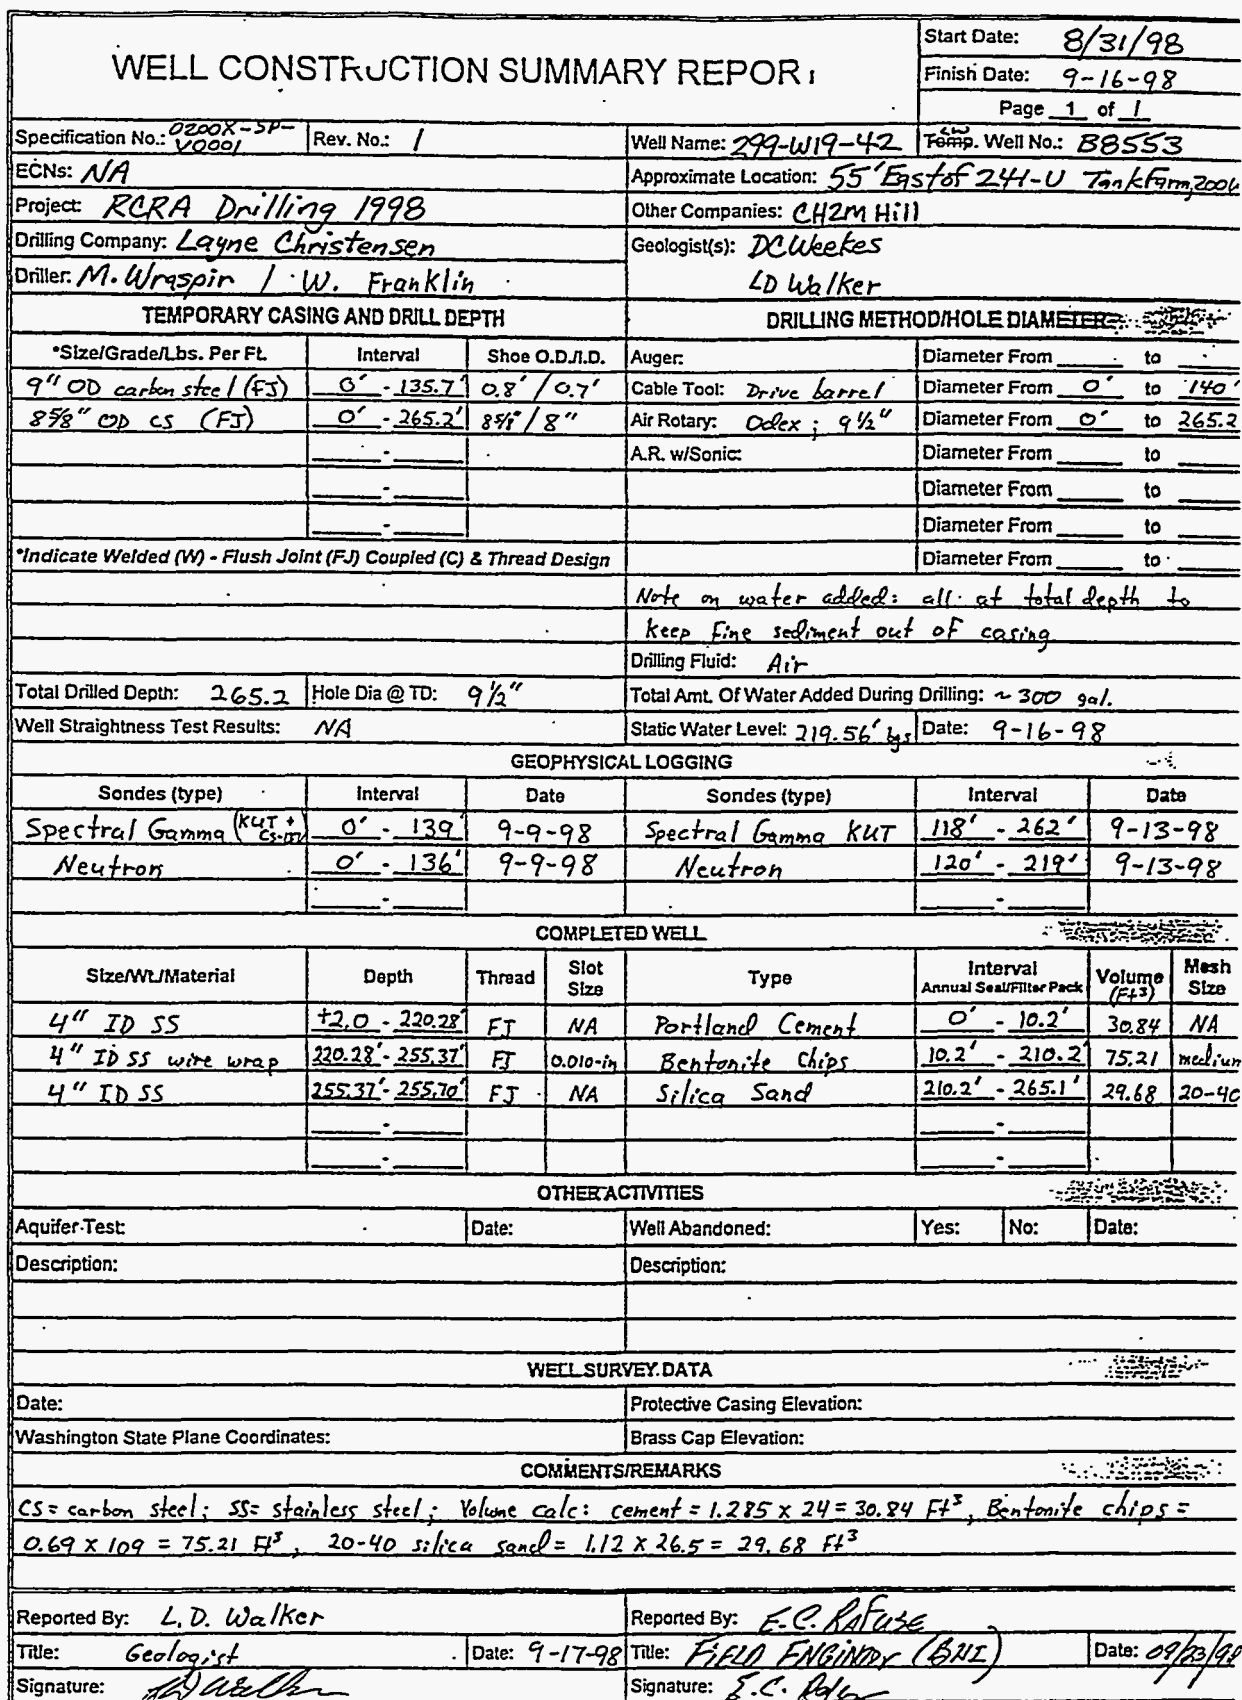 WELL CONSTRUCTION SUMMARY REPORT
Start Date: 8/31/98
Finish Date: 9-16-98
Page 1 of 1
Specification No.: 0200X-SP-V0001 Rev. No.: 1 Well Name: 299-W19-42 Temp. Well No.: B8553
ECNs: NA Approximate Location: 55' East of 241-U Tank Farm, 200W
Project: RCRA Drilling 1998 Other Companies: CH2M Hill
Drilling Company: Layne Christensen Geologist(s): DC Weekes
Driller: M. Wraspir / W. Franklin LD Walker
TEMPORARY CASING AND DRILL DEPTH DRILLING METHOD/HOLE DIAMETER
*Size/Grade/Lbs. Per Ft. Interval Shoe O.D./I.D. Auger: Diameter From ____ to ____
9" OD carbon steel (FJ) 0' - 135.7' 0.8' / 0.7' Cable Tool: Drive barrel Diameter From 0' to 140'
8 5/8" OD CS (FJ) 0' - 265.2' 8 5/8" / 8" Air Rotary: Odex; 9 1/2" Diameter From 0' to 265.2
____ - ____ A.R. w/Sonic: Diameter From ____ to ____
____ - ____ Diameter From ____ to ____
____ - ____ Diameter From ____ to ____
*Indicate Welded (W) - Flush Joint (FJ) Coupled (C) & Thread Design Diameter From ____ to ____
Note on water added: all at total depth to
keep fine sediment out of casing
Drilling Fluid: Air
Total Drilled Depth: 265.2 Hole Dia @ TD: 9 1/2" Total Amt. Of Water Added During Drilling: ~ 300 gal.
Well Straightness Test Results: NA Static Water Level: 219.56' bgs Date: 9-16-98
GEOPHYSICAL LOGGING
Sondes (type) Interval Date Sondes (type) Interval Date
Spectral Gamma (KUT + Cs-137) 0' - 139' 9-9-98 Spectral Gamma KUT 118' - 262' 9-13-98
Neutron 0' - 136' 9-9-98 Neutron 120' - 219' 9-13-98
____ - ____ ____ - ____
COMPLETED WELL
Size/Wt./Material Depth Thread Slot Size Type Interval Annual Seal/Filter Pack Volume (Ft3) Mesh Size
4" ID SS +2.0 - 220.28' FJ NA Portland Cement 0' - 10.2' 30.84 NA
4" ID SS wire wrap 220.28' - 255.37' FJ 0.010-in Bentonite Chips 10.2' - 210.2' 75.21 medium
4" ID SS 255.37' - 255.70' FJ NA Silica Sand 210.2' - 265.1' 29.68 20-40
____ - ____ ____ - ____
____ - ____ ____ - ____
OTHER ACTIVITIES
Aquifer Test: Date: Well Abandoned: Yes: No: Date:
Description: Description:
WELL SURVEY DATA
Date: Protective Casing Elevation:
Washington State Plane Coordinates: Brass Cap Elevation:
COMMENTS/REMARKS
CS = carbon steel; SS = stainless steel; Volume calc: cement = 1.285 x 24 = 30.84 Ft³, Bentonite chips =
0.69 x 109 = 75.21 Ft³, 20-40 silica sand = 1.12 x 26.5 = 29.68 Ft³
Reported By: L.D. Walker Reported By: E.C. Rafuse
Title: Geologist Date: 9-17-98 Title: FIELD ENGINEER (BHI) Date: 09/23/98
Signature: Signature: